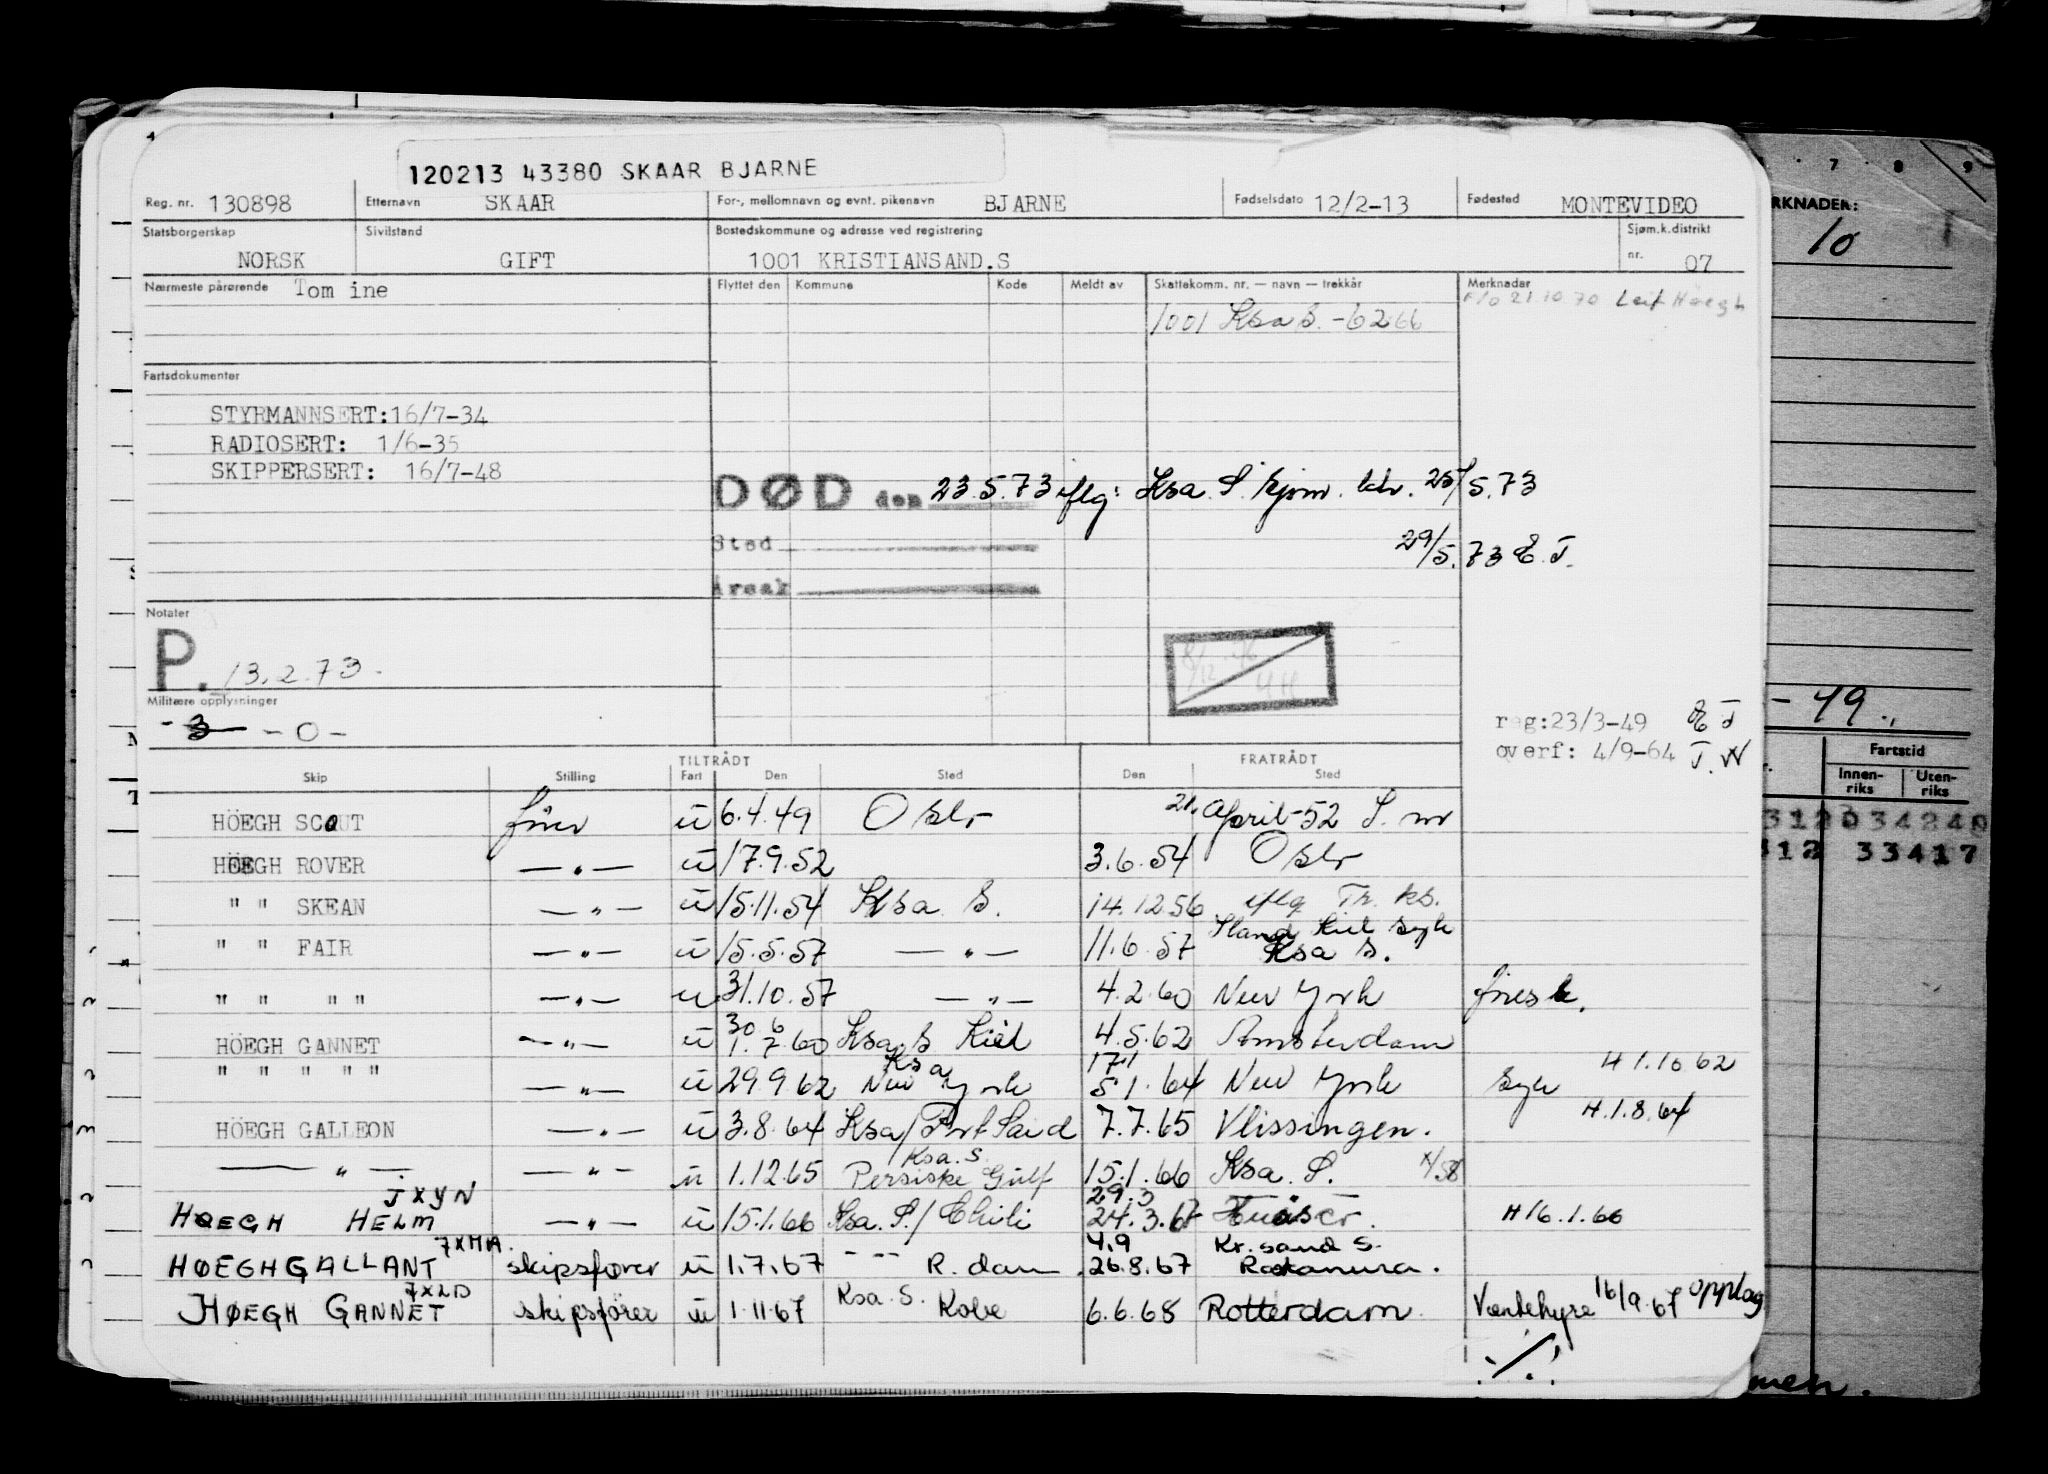 120213 43380 SKAAR BJARNE
Reg. nr. 130898 Etternavn SKAAR For-, mellomnavn og evnt. pikenavn BJARNE Fødselsdato 12/2-13 Fødested MONTEVIDEO
Statsborgerskap Sivilstand Bostedskommune og adresse ved registrering Sjøm.k.distrikt
NORSK GIFT 1001 KRISTIANSAND.S nr. 07
Nærmeste pårørende Tom ine Flyttet den Kommune Kode Meldt av Skattekomm. nr. — navn — trekkår Merknader
F/o 21.10 70 Leif Höegh
1001 Ksa S. -62 66
Fartsdokumenter
STYRMANNSERT:16/7-34
RADIOSERT: 1/6-35
SKIPPERSERT: 16/7-48
DØD den 23.5.73 iflg: Ksa. S. sjøm. ktr. 25/5.73
Sted 29/5.73 E.T.
Årsak
Notater
P. 13.2.73.
Militære opplysninger
-3- -0-
reg:23/3-49 E T
overf: 4/9-64 T.W
TILTRÅDT FRATRÅDT
Skip Stilling Fart Den Sted Den Sted
HÖEGH SCOUT fører u 6.4.49 Oslo 21. April-52
HÖEGH ROVER —"— u 17.9.52 3.6.54 Oslo
" " SKEAN —"— u 15.11.54 Ksa S. 14.12.56 iflg Tr. ks.
" " FAIR —"— u 15.5.57 —"— 11.6.57 Ksa S.
" " " " —"— u 31.10.57 —"— 4.2.60 New York
30 6
HÖEGH GANNET —"— u 1.7.60 Ksa S Kiel 4.5.62 Amsterdam
Ksa 17.1 H 1.10 62
" " " " " —"— u 29.9.62 New York 5.1.64 New York Syk
H.1.8.64
HÖEGH GALLEON —"— u 3.8.64 Ksa/Port Said 7.7.65 Vlissingen.
Ksa. S.
—"— —"— u 1.12.65 Persiske Gulf 15.1.66 Ksa. S.
JXYN 29.3
HØEGH HELM —"— u 15.1.66 Ksa. S./Chili 24.3.67 H 16.1.66
7XMA. 4.9 Kr. sand S.
HØEGH GALLANT skipsfører u 1.7.67 R. dam 26.8.67
7XLD
HØEGH GANNET skipsfører u 1.11.67 Ksa. S. Kobe 6.6.68 Rotterdam Ventehyre 16/9.67 opplag
./.
7 8 9
RKNADER:
10
- 49.
Fartstid
Innen-riks Uten-riks
312034240
312 33417
men.